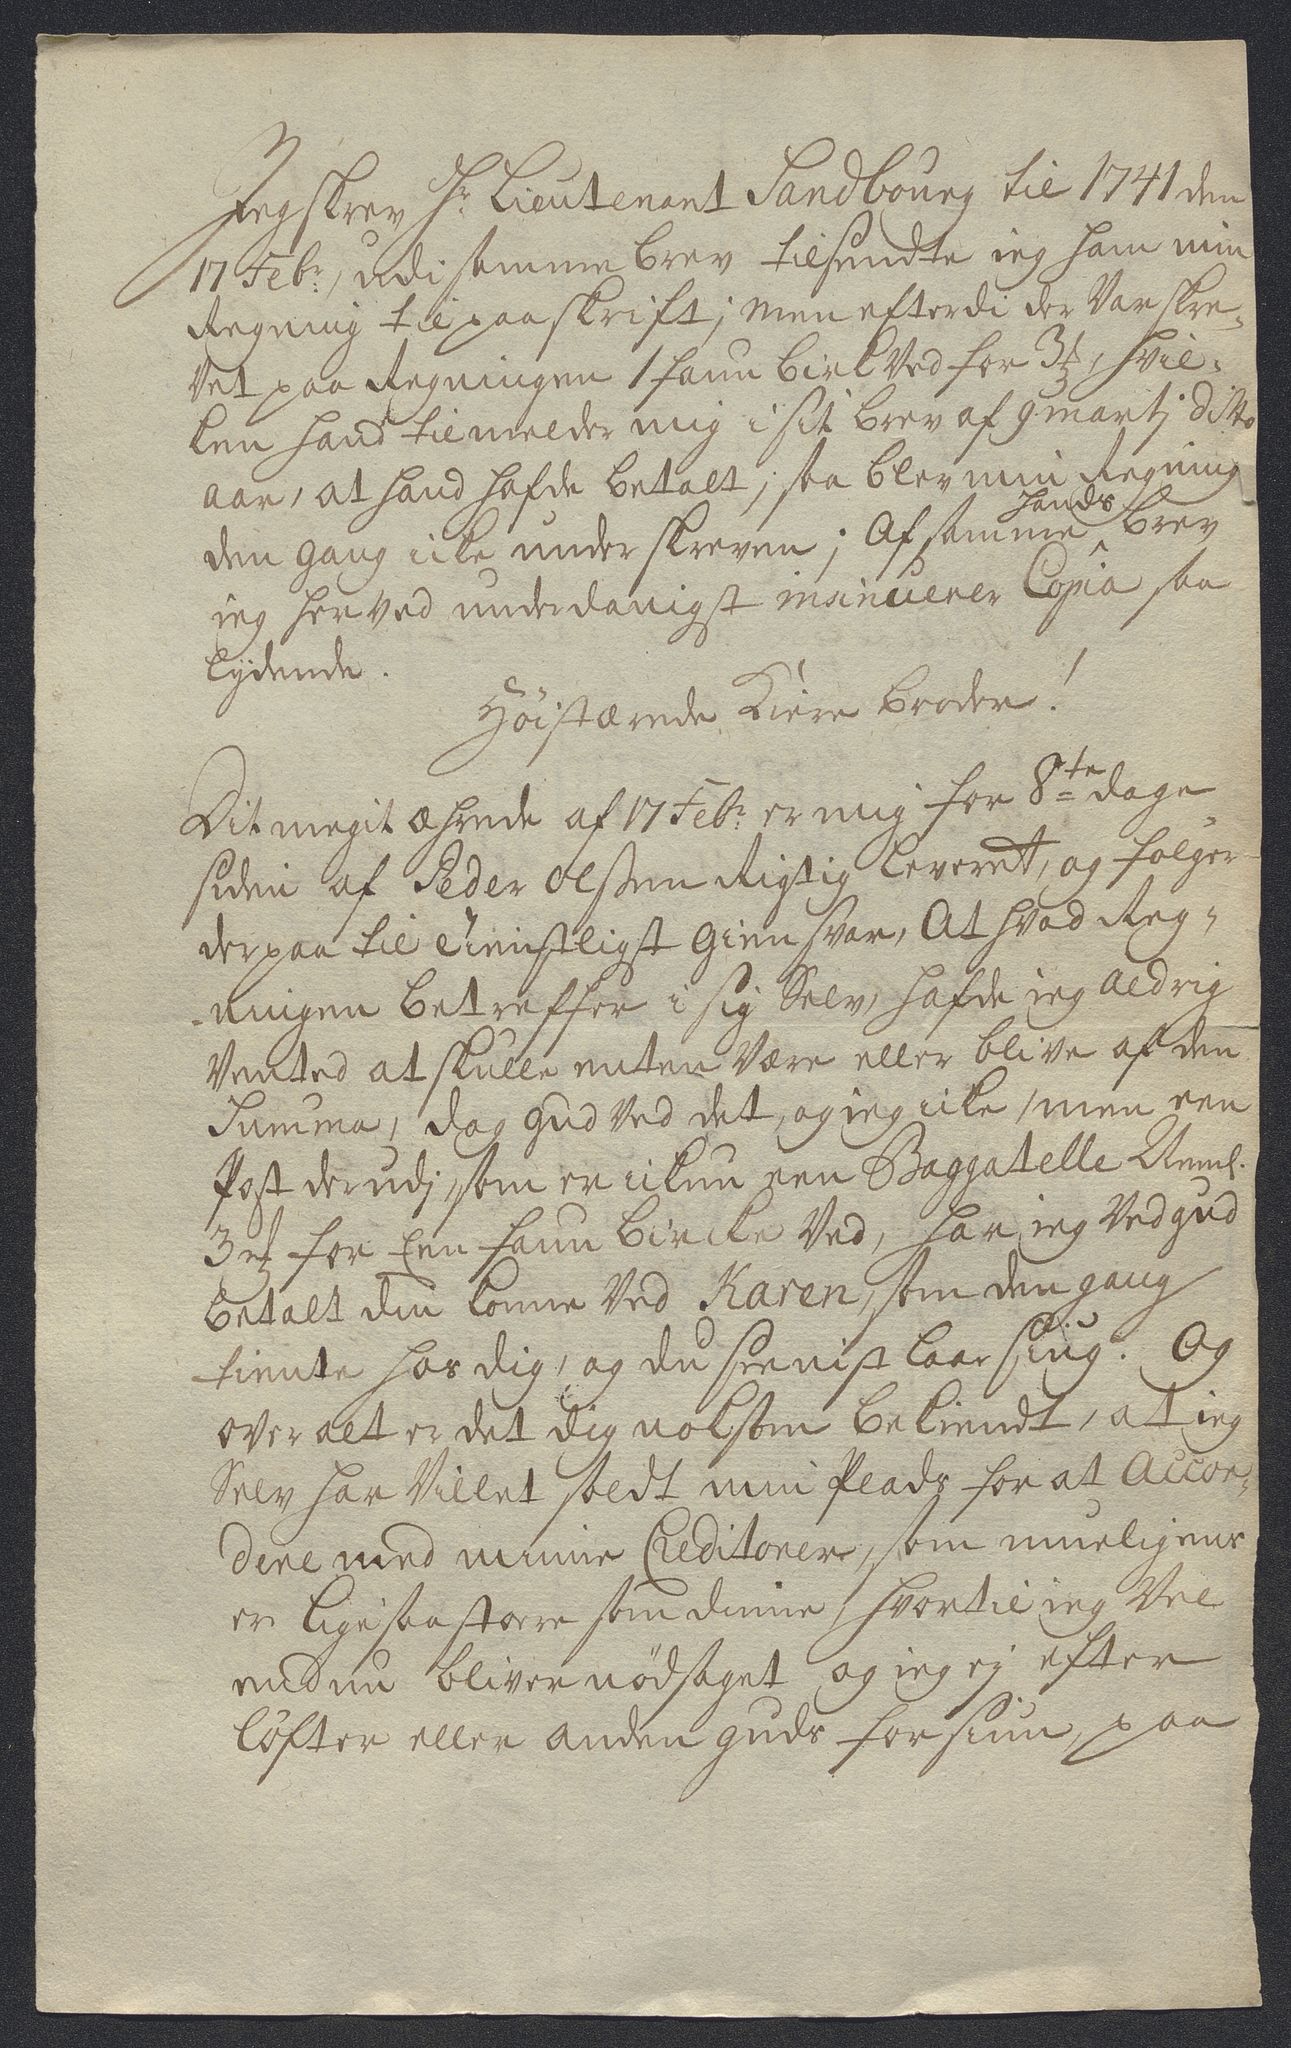 Jeg skrev Hr Lieutenant Sandbourg til 1741 den
17 Febr:, udi samme brev tilsendte ieg ham min
Regning til paaskrift; men efterdi der Var skre-
vet paa Regningen 1 faun birk Ved for 3 rd, hvil-
ken hand tilmelder mig i sit brev af 9 martj ditto
aar, at hand hafde betalt; saa blev min Regning
den gang icke underskreven; Af samme hands brev
ieg herved underdanigst insinuerer Copia saa
lydende.
Höistærede Kiere broder!
Dit megit ærede af 17 Febr: er mig for 8te dage
siden af Peder Olssen Rigtig leveret, og fölger
derpaa til tienstligst Giensvar, At hvad Reg-
-ningen betreffer i sig Selv, hafde ieg aldrig
Vented at skulle enten Være eller blive af den
Summa, dog gud Ved det, og ieg icke, men een
Post derudj, som er ikun een Baggatelle Neml.
3 rd for Een faun bircke Ved, har ieg Ved gud
betalt din konne Ved Karen, som den gang
tiente hos dig, og du seenist laae siug. Og
over alt er det dig nolsom bekiendt, at ieg
Selv har Villet soldt min Plads for at Accor-
dere med minne Creditorer, som mueligens
er ligesaa store som dinne, hvortil ieg Vel
endnu bliver nödsaget og ieg ej efter
löfter eller anden guds forsiun, paa